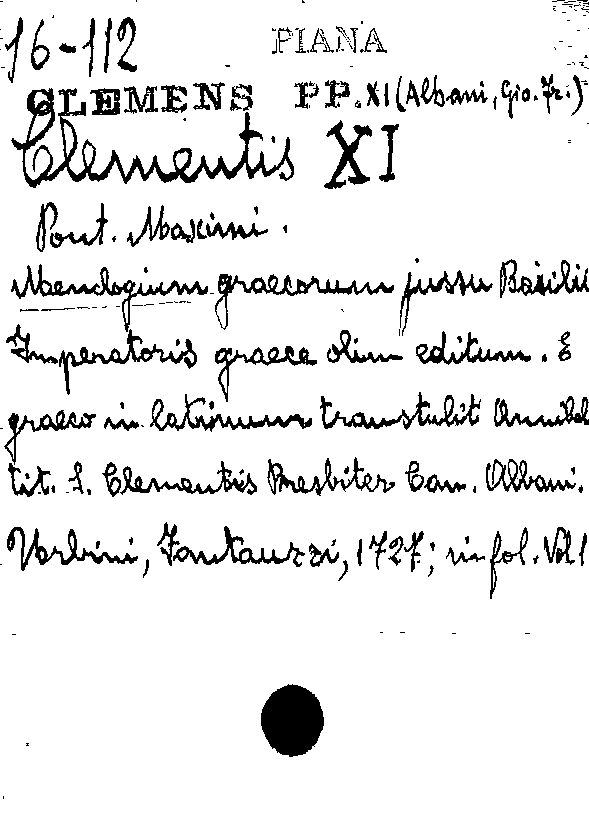 16-112
PIANA
CLEMENS PP. XI (Albani, Gio. Fr.)
Clementis XI
Pont. Maximi.
Menologium graecorum jussu Basilii
Imperatoris graece olim editum. E
graeco in latinum transtulit Annibal
tit. S. Clementis Presbiter Cam. Albani.
Urbini, Fantauzzi, 1727; in fol. Vol 1